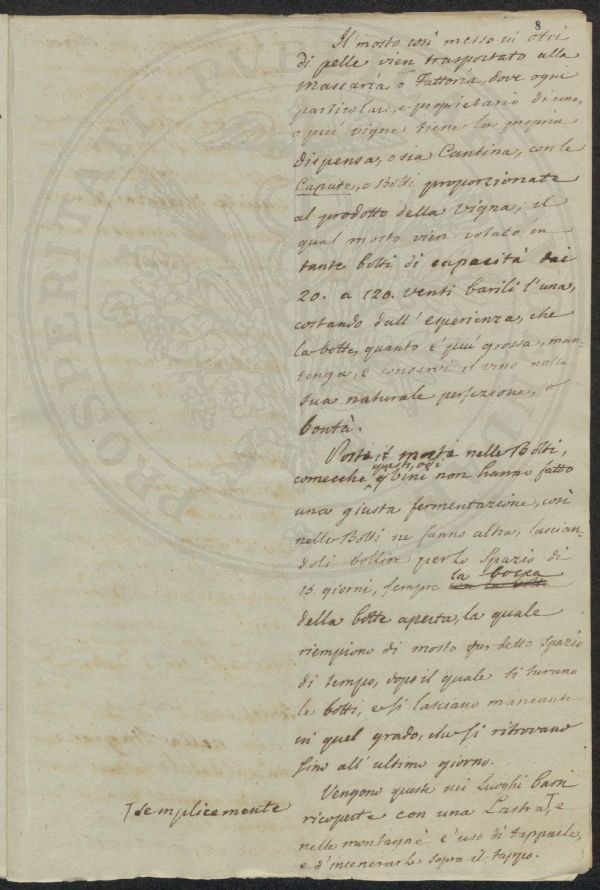 8
Il mosto così messo in otri
di pelle vien trasportato alla
Massaria, o Fattoria, dove ogni
particolare, e proprietario di una,
o più vigne tiene la propria
dispensa, o sia Cantina, con le
Capute, o Botti proporzionate
al prodotto della Vigna; il
qual mosto vien colato in
tante botti di capacità dai
20. a 120. venti barili l'una,
costando dall' esperienza, che
la botte, quanto è più grossa, man-
tenga, e conservi il vino nella
sua naturale perfezione, o
bontà.
Posto il mosto nelle Botti,
comecchè questi, o sì vini non hanno fatto
una giusta fermentazione, così
nelle Botti ne fanno altra, lascian-
doli bollire per lo Spazio di
15 giorni, sempre la bocca
della botte aperta, la quale
riempiono di mosto pur detto spazio
di tempo, dopo il quale si turano
le botti, e si lasciano mancanti
in quel grado, che si ritrovano
sino all' ultimo giorno.
Vengono queste nei Luoghi bassi
ricoperte con una Lastra T, e
T semplicemente
nelle montagne è uso di tapparle,
e d'incenerarle sopra il tappo.